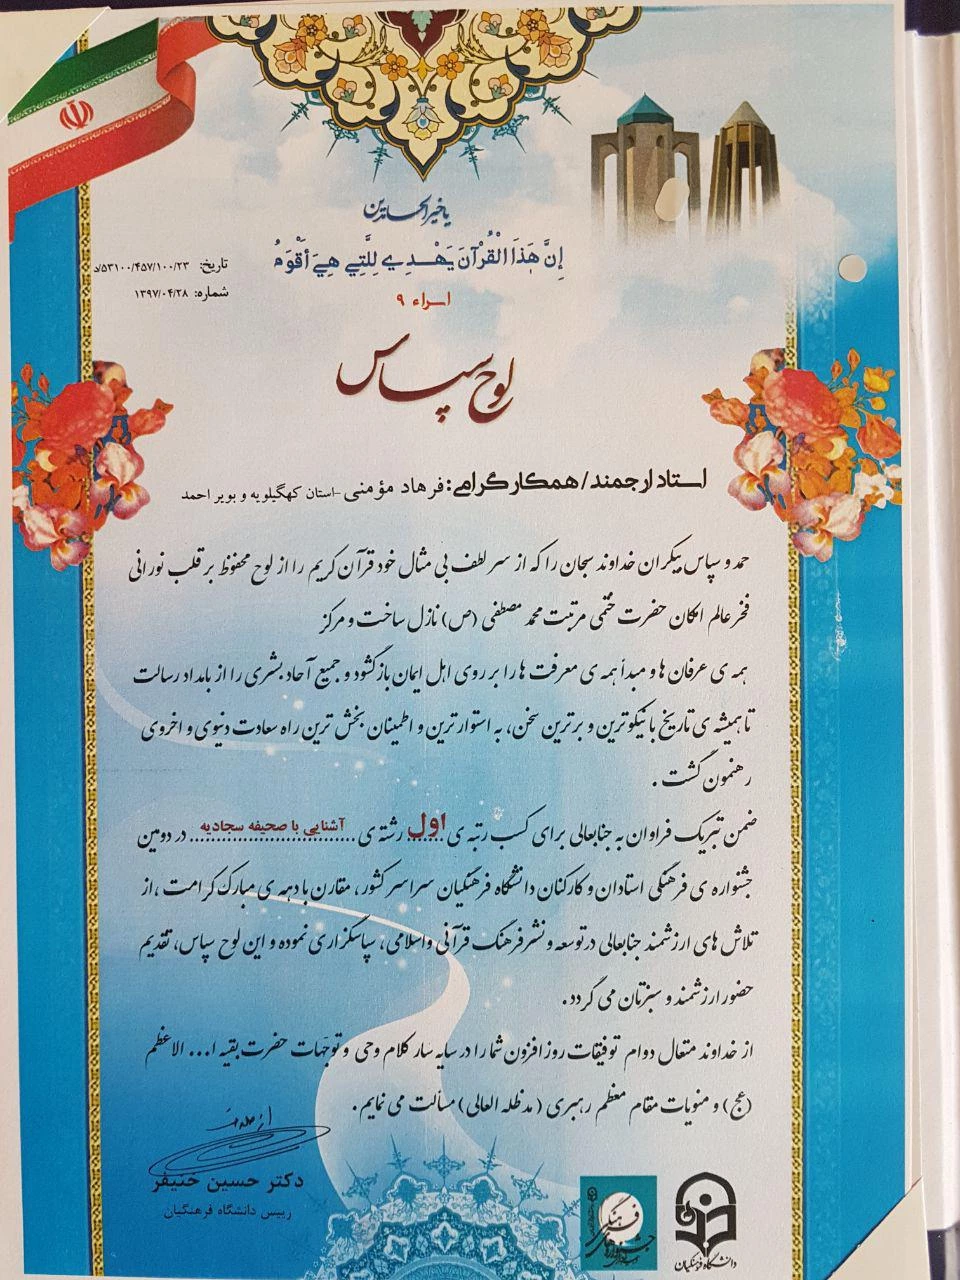 یا خیر الحامدین
إِنَّ هَذَا الْقُرْآنَ يَهْدِي لِلَّتِي هِيَ أَقْوَمُ
اسراء ۹
تاریخ: ۵۳۱۰۰/۴۵۷/۱۰۰/۲۳/د
شماره: ۱۳۹۷/۰۴/۲۸
لوح سپاس
استاد ارجمند/همکار گرامی: فرهاد مؤمنی -استان کهگیلویه و بویر احمد
حمد و سپاس بیکران خداوند سبحان را که از سر لطف بی مثال خود قرآن کریم را از لوح محفوظ بر قلب نورانی
فخر عالم امکان حضرت ختمی مرتبت محمد مصطفی (ص) نازل ساخت و مرکز
همه ی عرفان ها و مبدأ همه ی معرفت ها را بر روی اهل ایمان بازگشود و جمیع آحاد بشری را از بامداد رسالت
تا همیشه ی تاریخ با نیکوترین و برترین سخن، به استوارترین و اطمینان بخش ترین راه سعادت دنیوی و اخروی
رهنمون گشت .
ضمن تبریک فراوان به جنابعالی برای کسب رتبه ی اول رشته ی آشنایی با صحیفه سجادیه در دومین
جشنواره ی فرهنگی استادان و کارکنان دانشگاه فرهنگیان سراسر کشور، مقارن با دهه ی مبارک کرامت ،از
تلاش های ارزشمند جنابعالی در توسعه و نشر فرهنگ قرآنی و اسلامی، سپاسگزاری نموده و این لوح سپاس، تقدیم
حضور ارزشمند و سبزتان می گردد .
از خداوند متعال دوام توفیقات روز افزون شما را در سایه سار کلام وحی و توجهات حضرت بقیه ا... الاعظم
(عج) و منویات مقام معظم رهبری (مدظله العالی) مسألت می نمایم .
دکتر حسین خنیفر
رییس دانشگاه فرهنگیان
دانشگاه فرهنگیان